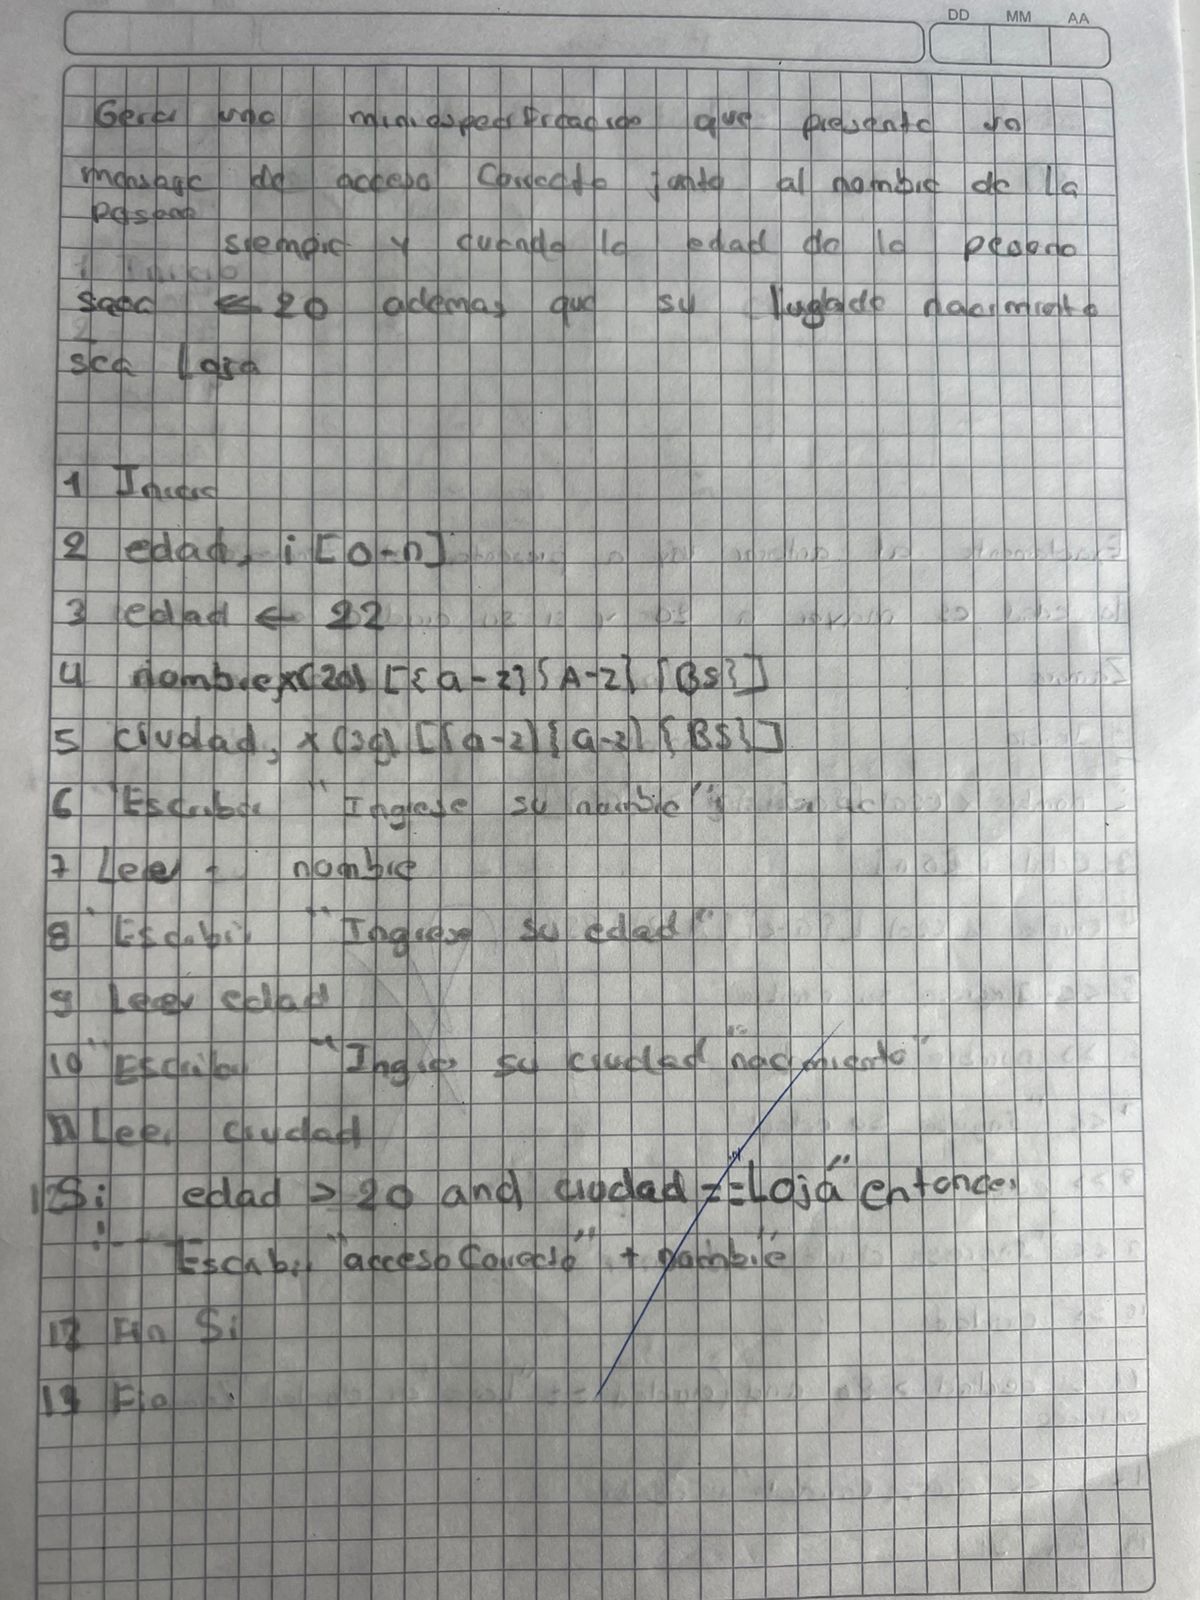 DD MM AA
Gera una miniespecificación que presente un
mensage de acceso Correcto junto al nombre de la
persona
siempre y cuando la edad de la persona
sea <= 20 ademas que su lugade nacimiento
sea Loja
1 Inicio
2 edad, i [0-n]
3 edad ← 22
4 nombre, x(20) [{a-z}{A-Z}{BS}]
5 ciudad, x(30) [{a-z}{a-z}{BS}]
6 "Escriba "Ingrese su nombre"
7 Leer nombre
8 "Escribi "Ingrese su edad"
9 Leer edad
10 "Escriba "Ingre su ciudad nacimiento"
11 Leer ciudad
12 Si edad > 20 and ciudad == "Loja" entonces
Escribi "acceso Correcto" + nombre
Fin Si
Fin